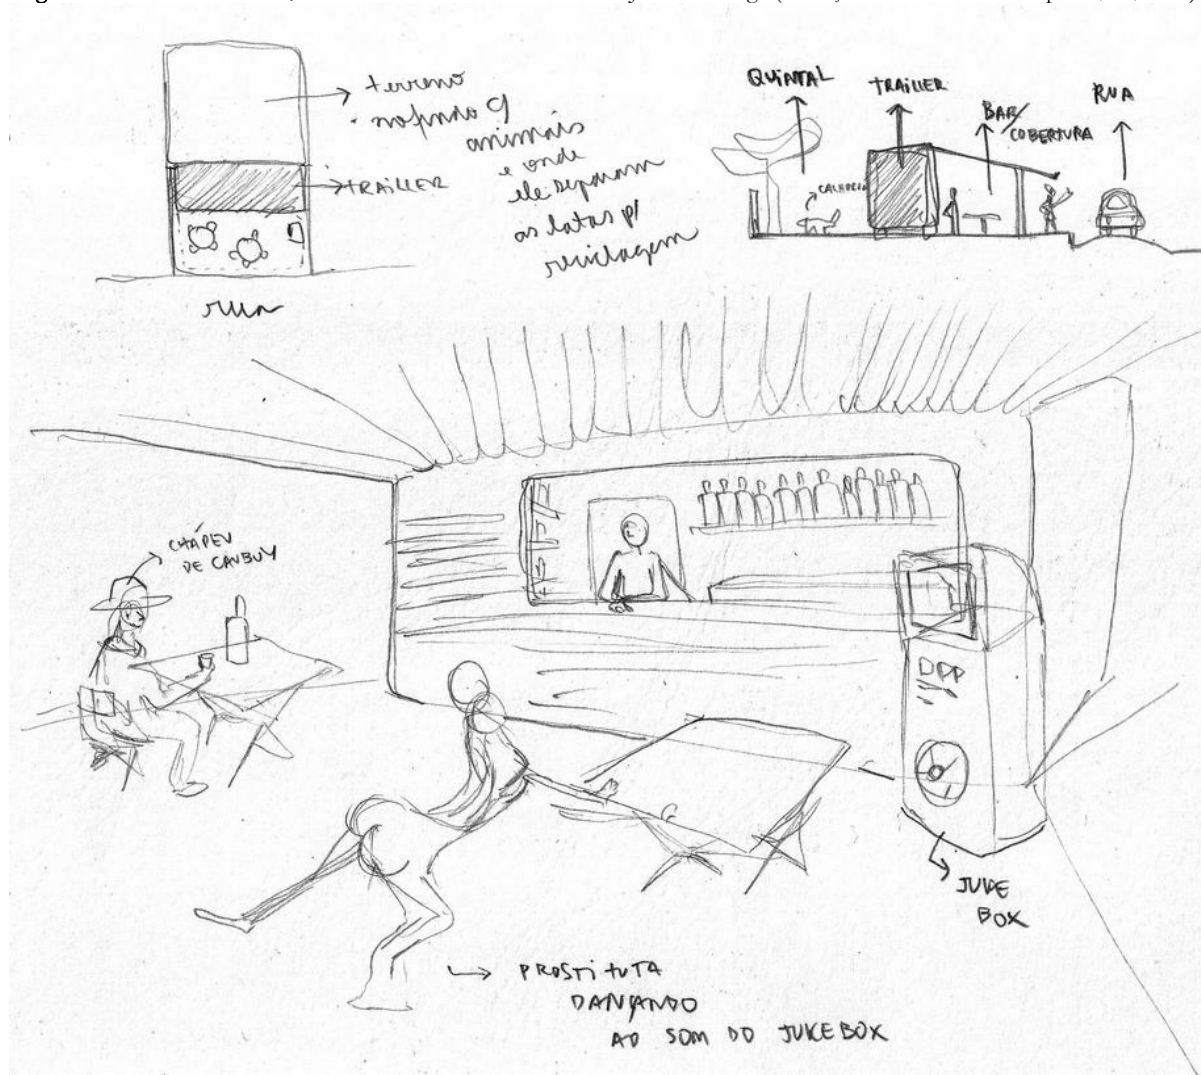 terreno
no fundo c/
animais
e onde
ele separam
as latas p/
reciclagem
TRAILLER
rua
QUINTAL
TRAILLER
BAR/
COBERTURA
RUA
CACHORRO
CHAPEU
DE CAUBUY
JUKE
BOX
PROSTITUTA
DANÇANDO
AO SOM DO JUKEBOX